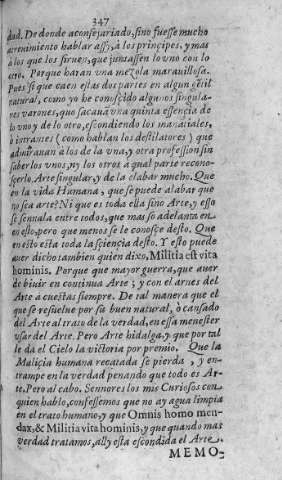 347
dad. De donde aconsejariado, sino fuesse mucho
atreuimiento hablar assy, à los principes, y mas
à los que los siruen, que juntassen lo vno con lo
otro. Porque haran vna mezcla marauillosa.
Pues si que caen estas dos partes en algun gētil
natural, como yo he conoscido algunos singula-
res varones, que sacauā vna quinta essencia de
lo vno y de lo otro, escondiendo los manātiales,
ò intrantes (como hablan los destilatores) que
admirauan à los de la vna, y otra profession sin
saberlos vnos, ny los otros à qual parte recono-
scerlo. Arte singular, y de la alabar mucho. Que
en la vida Humana, que se puede alabar que
no sea arte? Ni que es toda ella sino Arte, y esso
se sennala entre todos, que mas se adelanta en
en esto, pero que menos se le conosce desto. Que
en esto esta toda la sciencia desto. Y esto puede
auer dicho tambien quien dixo, Militia est vita
hominis. Porque que mayor guerra, que auer
de biuir en continua Arte; y con el arnes del
Arte a cuestas siempre. De tal manera que el
que se resuelue por su buen natural, ò cansado
del Arte al trato de la verdad, en essa menester
vsar del Arte. Pero Arte hidalga, y que por tal
le da el Cielo la victoria por premio. Que la
Malicia humana recatada se pierda, y en-
trampe en la verdad penando que todo es Ar-
te. Pero al cabo. Sennores los mis Curiosos con
quien hablo, confessemos que no ay agua limpia
en el trato humano, y que Omnis homo men-
dax, & Militia vita hominis, y que quando mas
verdad tratamos, ally esta escondida el Arte.
MEMO-